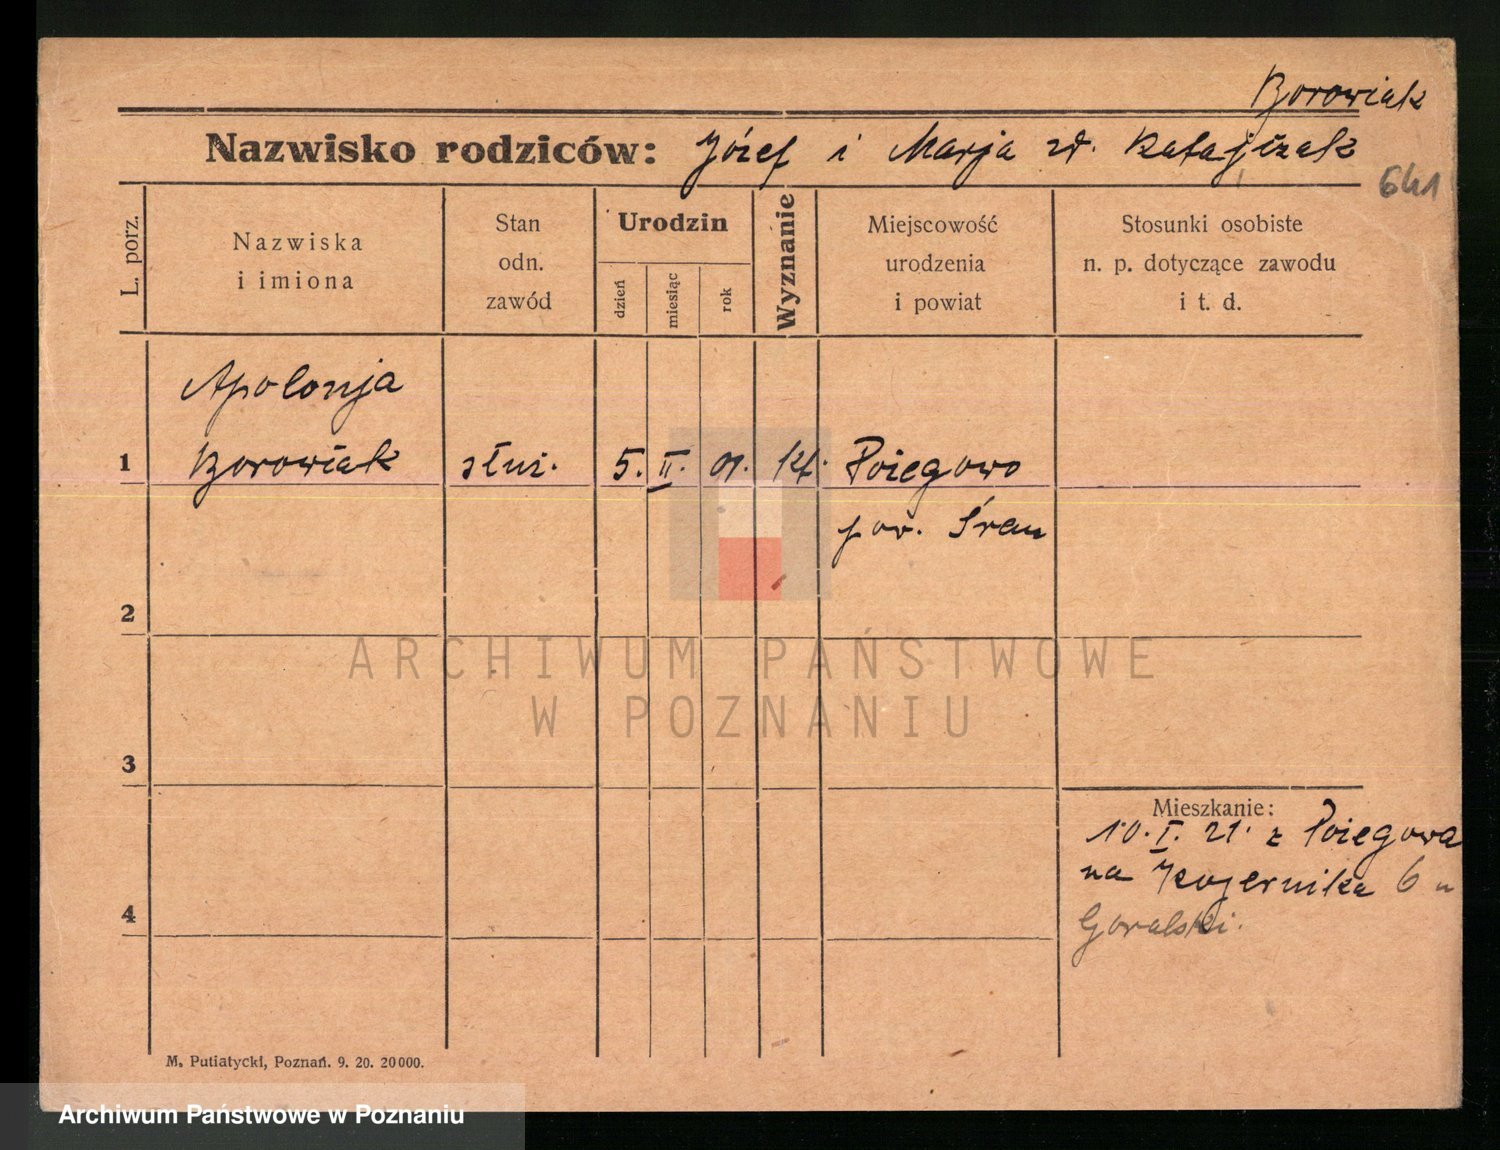 Borowiak
Nazwisko rodziców: Józef i Marja zd. Katajczak
641
L. porz.
Nazwiska
i imiona
Stan
odn.
zawód
Urodzin
dzień
miesiąc
rok
Wyznanie
Miejscowość
urodzenia
i powiat
Stosunki osobiste
n. p. dotyczące zawodu
i t. d.
Apolonja
1 Borowiak służ. 5. II. 01. kt. Pożegowo
pow. Śrem
2
ARCHIWUM PAŃSTWOWE
W POZNANIU
3
Mieszkanie:
10. I. 21. z Pożegowa
na Kopernika 6 u
4
Goralski.
M. Putiatycki, Poznań. 9. 20. 20000.
Archiwum Państwowe w Poznaniu